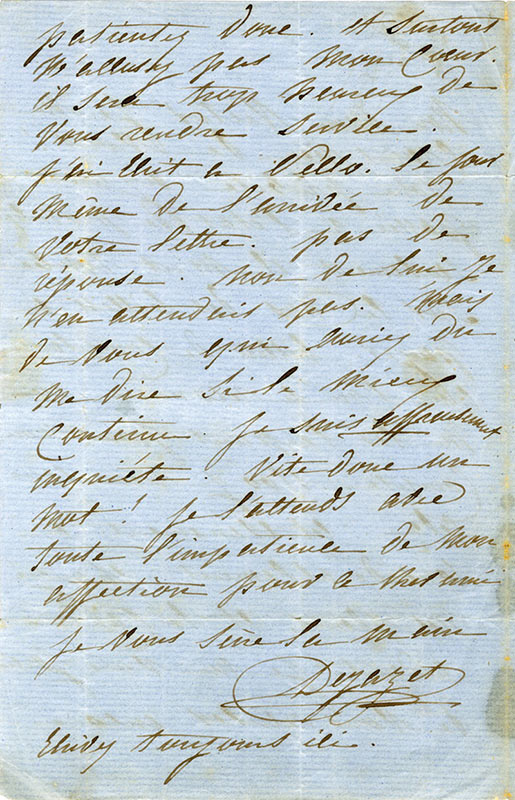 patientez donc. et surtout
n'accusez pas mon Cœur.
il sera trop heureux de
vous rendre service.
j'ai écrit à Vello. le jour
même de l'arrivée de
votre lettre. pas de
réponse. non de lui je
n'en attendais pas. mais
de vous qui auriez du
me dire si le mieux
continue. je suis affreusement
inquiète. Vite donc un
mot ! je l'attends avec
toute l'impatience de mon
affection pour ce cher ami
je vous serre la main
Dejazet
Ecrivez toujours ici.